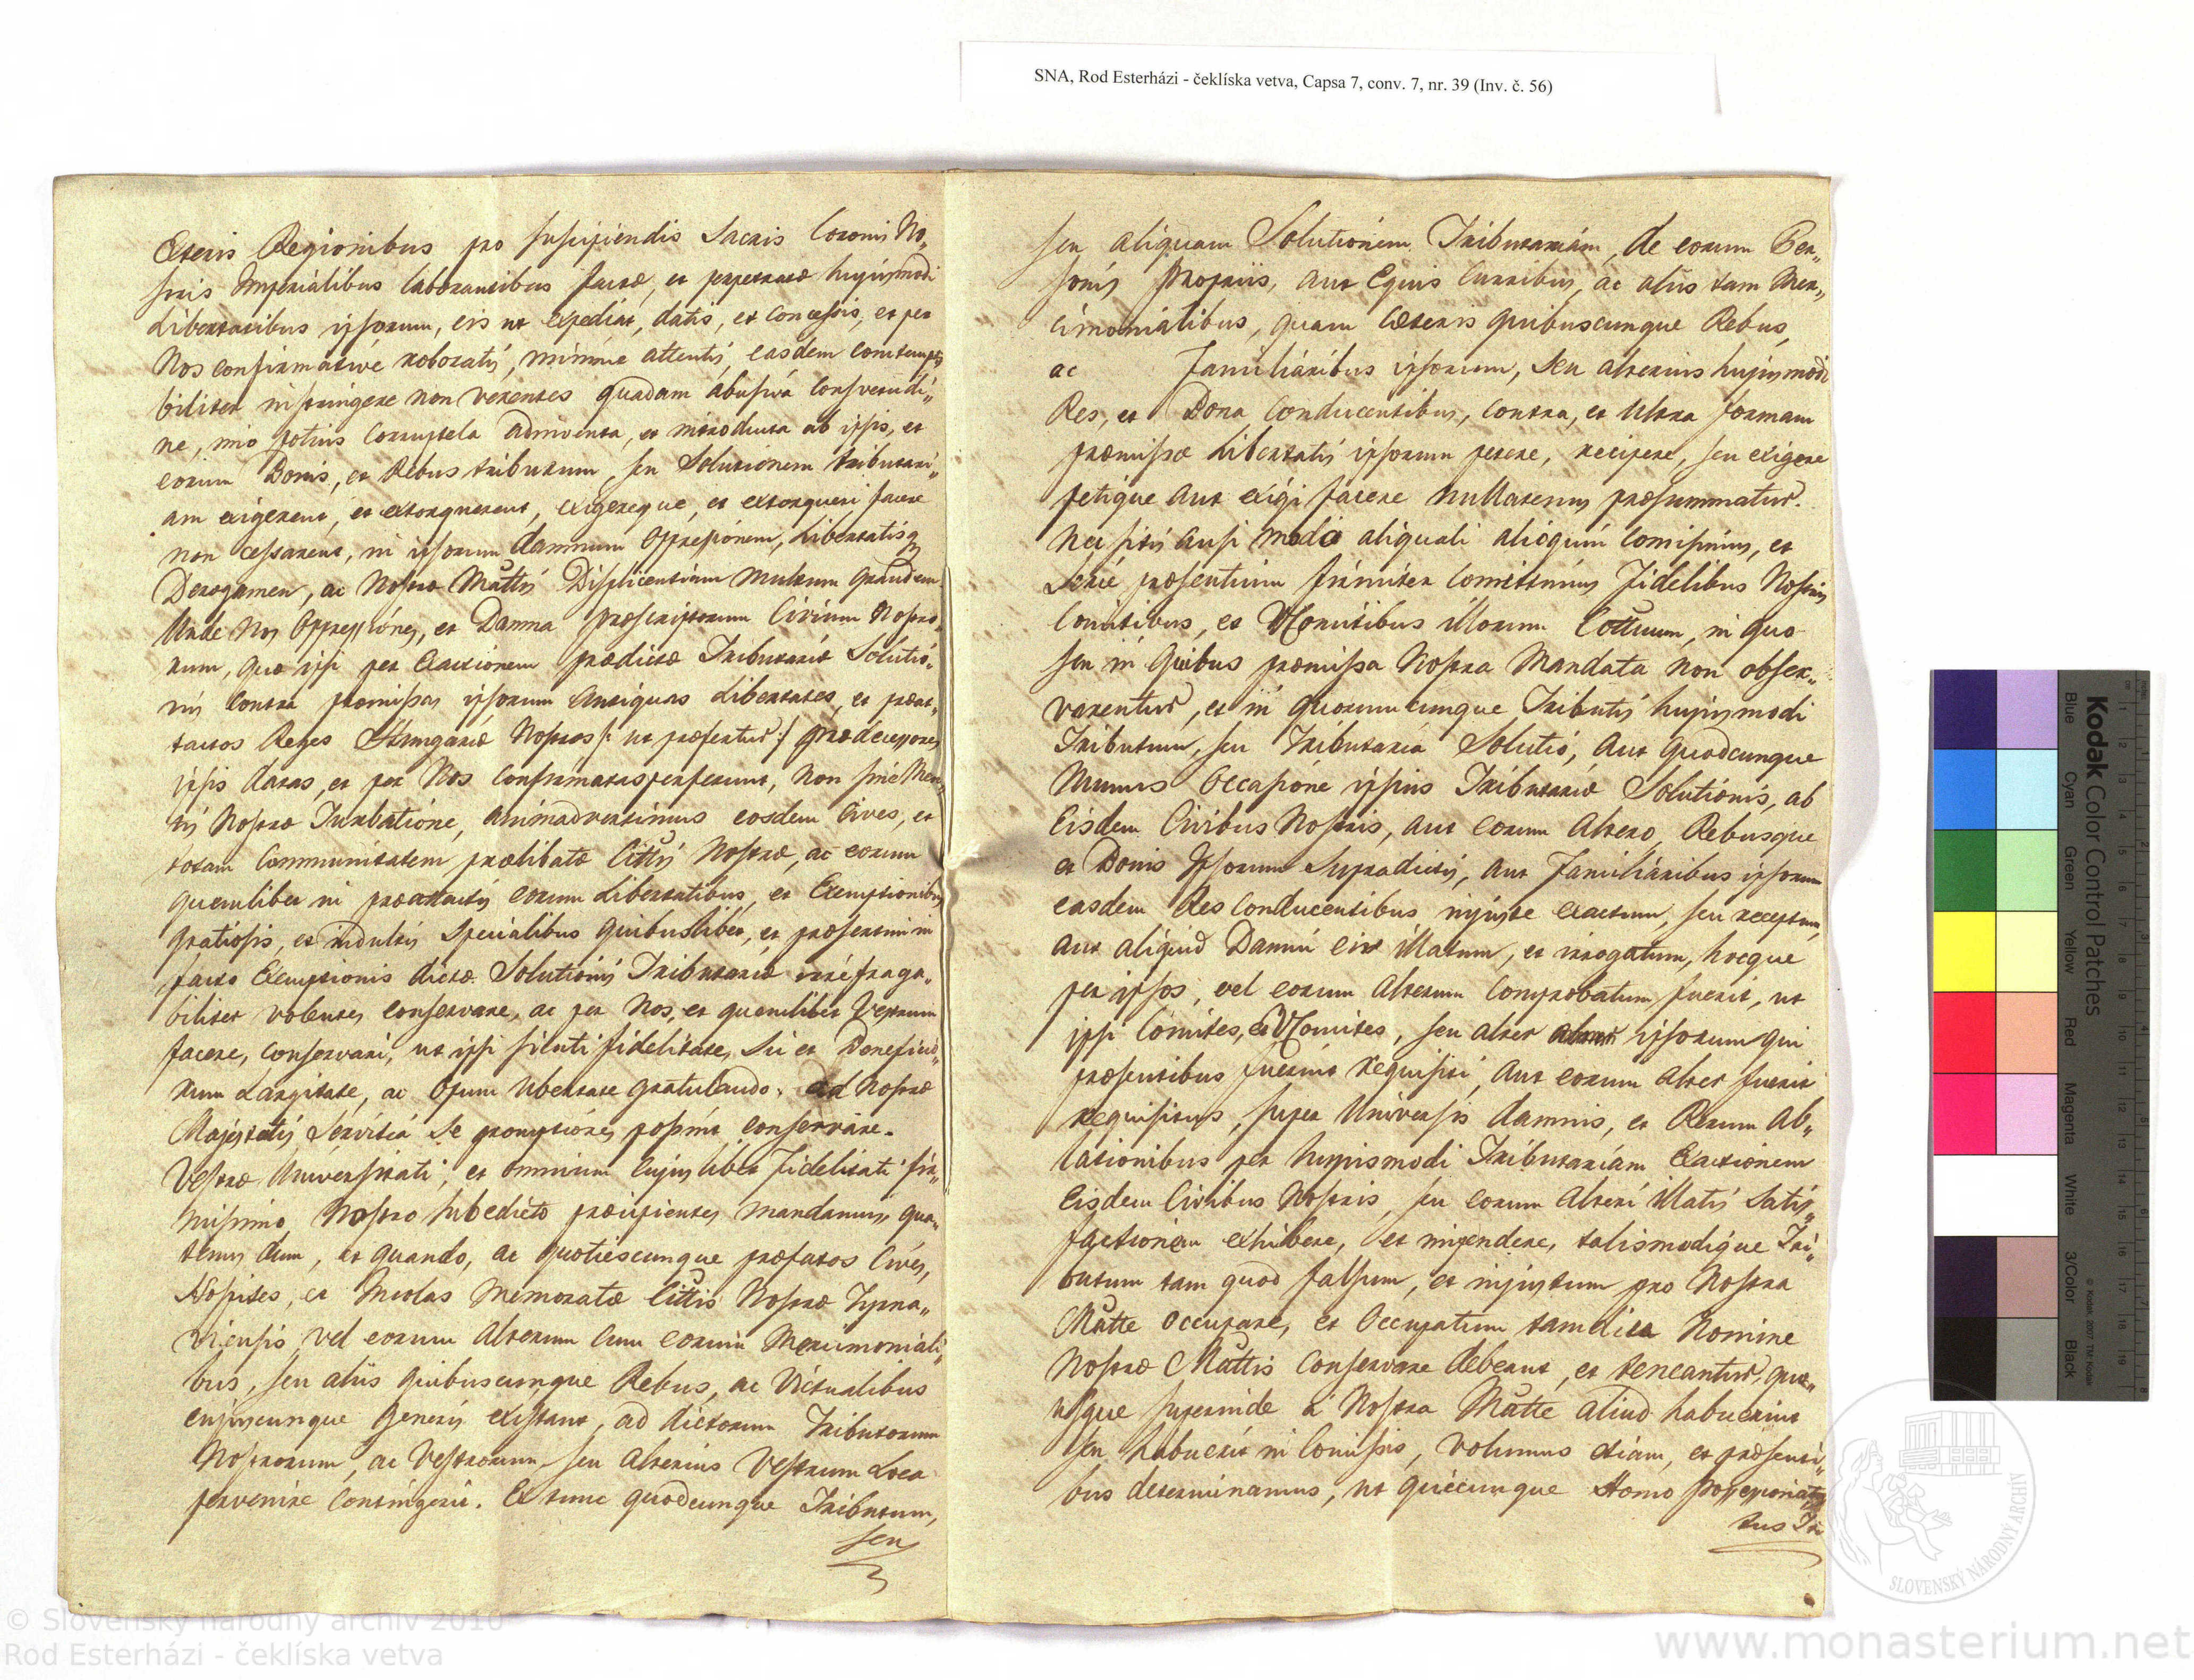 SNA, Rod Esterházi - čeklíska vetva, Capsa 7, conv. 7, nr. 39 (Inv. č. 56)
Exteris Regionibus pro suscipiendis Sacris Coronis No„
stris Imperialibus laborantibus factae, et perpetratae hujusmodi
Libertatibus ipsorum, eis ut expediat, datis, et concessis, et per
Nos confirmative roboratis, minime attentis, easdem contempti
biliter infringere non verentes quadam abusiva Consvetudi„
ne, imo potius Corruptela adinventa, et introducta ab ipsis, et
eorum Bonis, et Rebus tributum, seu Solutionem tributari„
am exigerent, et extorquerent, exigereque, et extorqueri facere
non cessarent, in ipsorum damnum Oppressionem, Libertatisq
Derogamen, ac Nostrae Mattis Displicentiam multum grandem
Unde Nos Oppressiones, et Damna praescriptorum Civium Nostro„
rum, quae ipsi per Exactionem praedictae Tributariae Solutio„
nis Contra praemissas ipsorum Antiquas Libertates, et prae„
tactos Reges Hungariae Nostros /: ut praefertur :/ praedecessores
ipsis datas, et per Nos Confirmatas perferunt, Non sine Men„
tis Nostrae Turbatione, animadvertimus eosdem Cives, et
totam Communitatem praelibatae Cittis Nostrae, ac eorum
quemlibet in praetactis eorum Libertatibus, et Exemptionibus
gratiosis, et indultis Specialibus quibuslibet, et praesertim in
facto Exemptionis dictae Solutionis Tributariae irrefraga„
biliter volentes conservare, ac per Nos, et quemlibet Vestrum
facere, conservari, ut ipsi sicuti fidelitate, sic et Beneficio„
rum Largitate, ac Opum Ubertate gratulando, ad Nostrae
Majestatis Servitia se promptiores possint conservare.
Vestrae Universitati, et omnium cujuslibet Fidelitati fir„
missimo Nostro sub edicto praecipientes mandamus, qua„
tenus dum, et quando, ac quotiescunque praefatos Cives,
Hospites, et Incolas Memoratae Cittis Nostrae Tyrna„
viensis, vel eorum Alterum Cum eorum Mercimoniali„
bus, seu aliis quibuscumque Rebus, ac Victualibus
cujuscunque generis existant, ad dictorum Tributorum
Nostrorum, ac Vestrorum, seu Alterius Vestrum Loca
pervenire Contingerit. Ex tunc quodcunque Tributum,
seu
seu aliquam Solutionem Tributariam, de eorum Per„
sonis propriis, aut Equis Curribus, ac aliis tam Mer„
cimonialibus, quam Caeteris quibuscunque Rebus,
ac Familiaribus ipsorum, seu alterius hujusmodi
Res, et Bona Conducentibus, Contra, et Ultra formam
praemissae Libertatis ipsorum petere, recipere, seu exigere
petique aut exigi facere nullatenus praesummatur.
Nec sitis ausi modo aliquali alioquin Comisimus, et
Serie praesentium firmiter Comittimus Fidelibus Nostris
Comitibus, et VComitibus illorum Cottuum, in quo
seu in quibus praemissa Nostra Mandata non obser„
varentur, et in quorumcumque Tributis hujusmodi
Tributum, seu Tributaria Solutio, aut quodcunque
Munus Occasione ipsius Tributariae Solutionis, ab
Eisdem Civibus Nostris, aut eorum altero, Rebusque
et Bonis Ipsorum Supradictis, aut Familiaribus ipsorum
easdem Res Conducentibus injuste exactum, seu receptum,
aut aliquid Damni eis illatum, et irrogatum, hocque
per ipsos, vel eorum Alterum Comprobatum fuerit, ut
ipsi Comites, et VComites, seu alter ipsorum qui
praesentibus fuerint requisiti, aut eorum alter fuerit
requisitus, super Universis damnis, et Rerum Ab„
lationibus per hujusmodi Tributariam Exactionem
Eisdem Civibus Nostris, seu eorum Alteri illatis Satis„
factionem exhibere, et impendere, talismodique Tri„
butum tam quod falsum, et injustum pro Nostra
Matte occupare, et Occupatum tamdiu Nomine
Nostrae Mattis Conservare debeant, et teneantur, quo„
usque superinde a Nostra Matte aliud habuerint
seu habuerit in Comissis, volumus etiam, et praesenti„
bus determinamus, ut quicunque Homo Possessiona
tus Tri
Kodak Color Control Patches
Blue Cyan Green Yellow Red Magenta White 3/Color Black
© Kodak 2007 TM Kodak
SLOVENSKÝ NÁRODNÝ ARCHÍV
© Slovenský národný archív 2010
Rod Esterházi - čeklíska vetva
www.monasterium.net